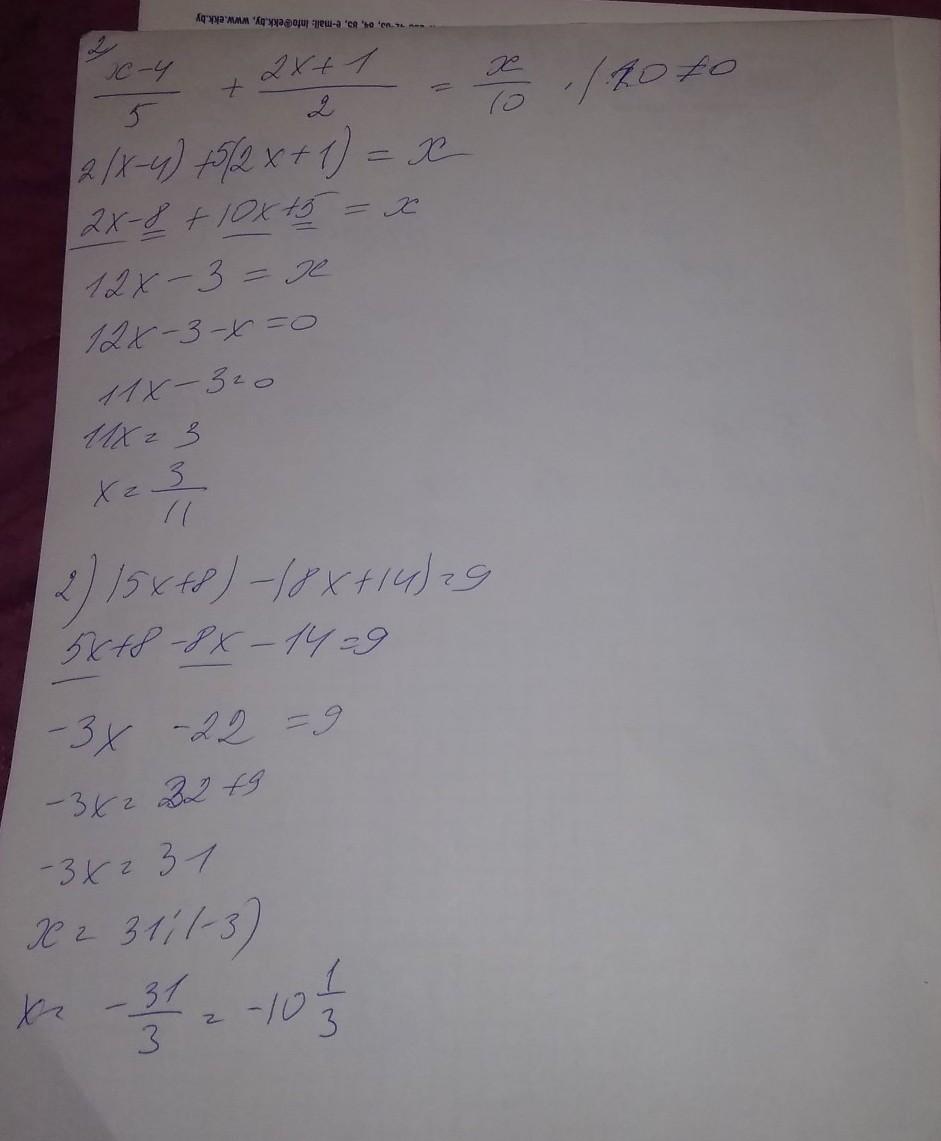 85, e-mail: info@ekk.by, www.ekk.by
2)
x-4/5 + 2x+1/2 = x/10 ·|10≠0
2(x-4)+5(2x+1)=x
2x-8+10x+5=x
12x-3=x
12x-3-x=0
11x-3=0
11x=3
x=3/11
2) (5x+8)-(8x+14)=9
5x+8-8x-14=9
-3x -22 =9
-3x=22+9
-3x=31
x=31:(-3)
x=-31/3=-10 1/3